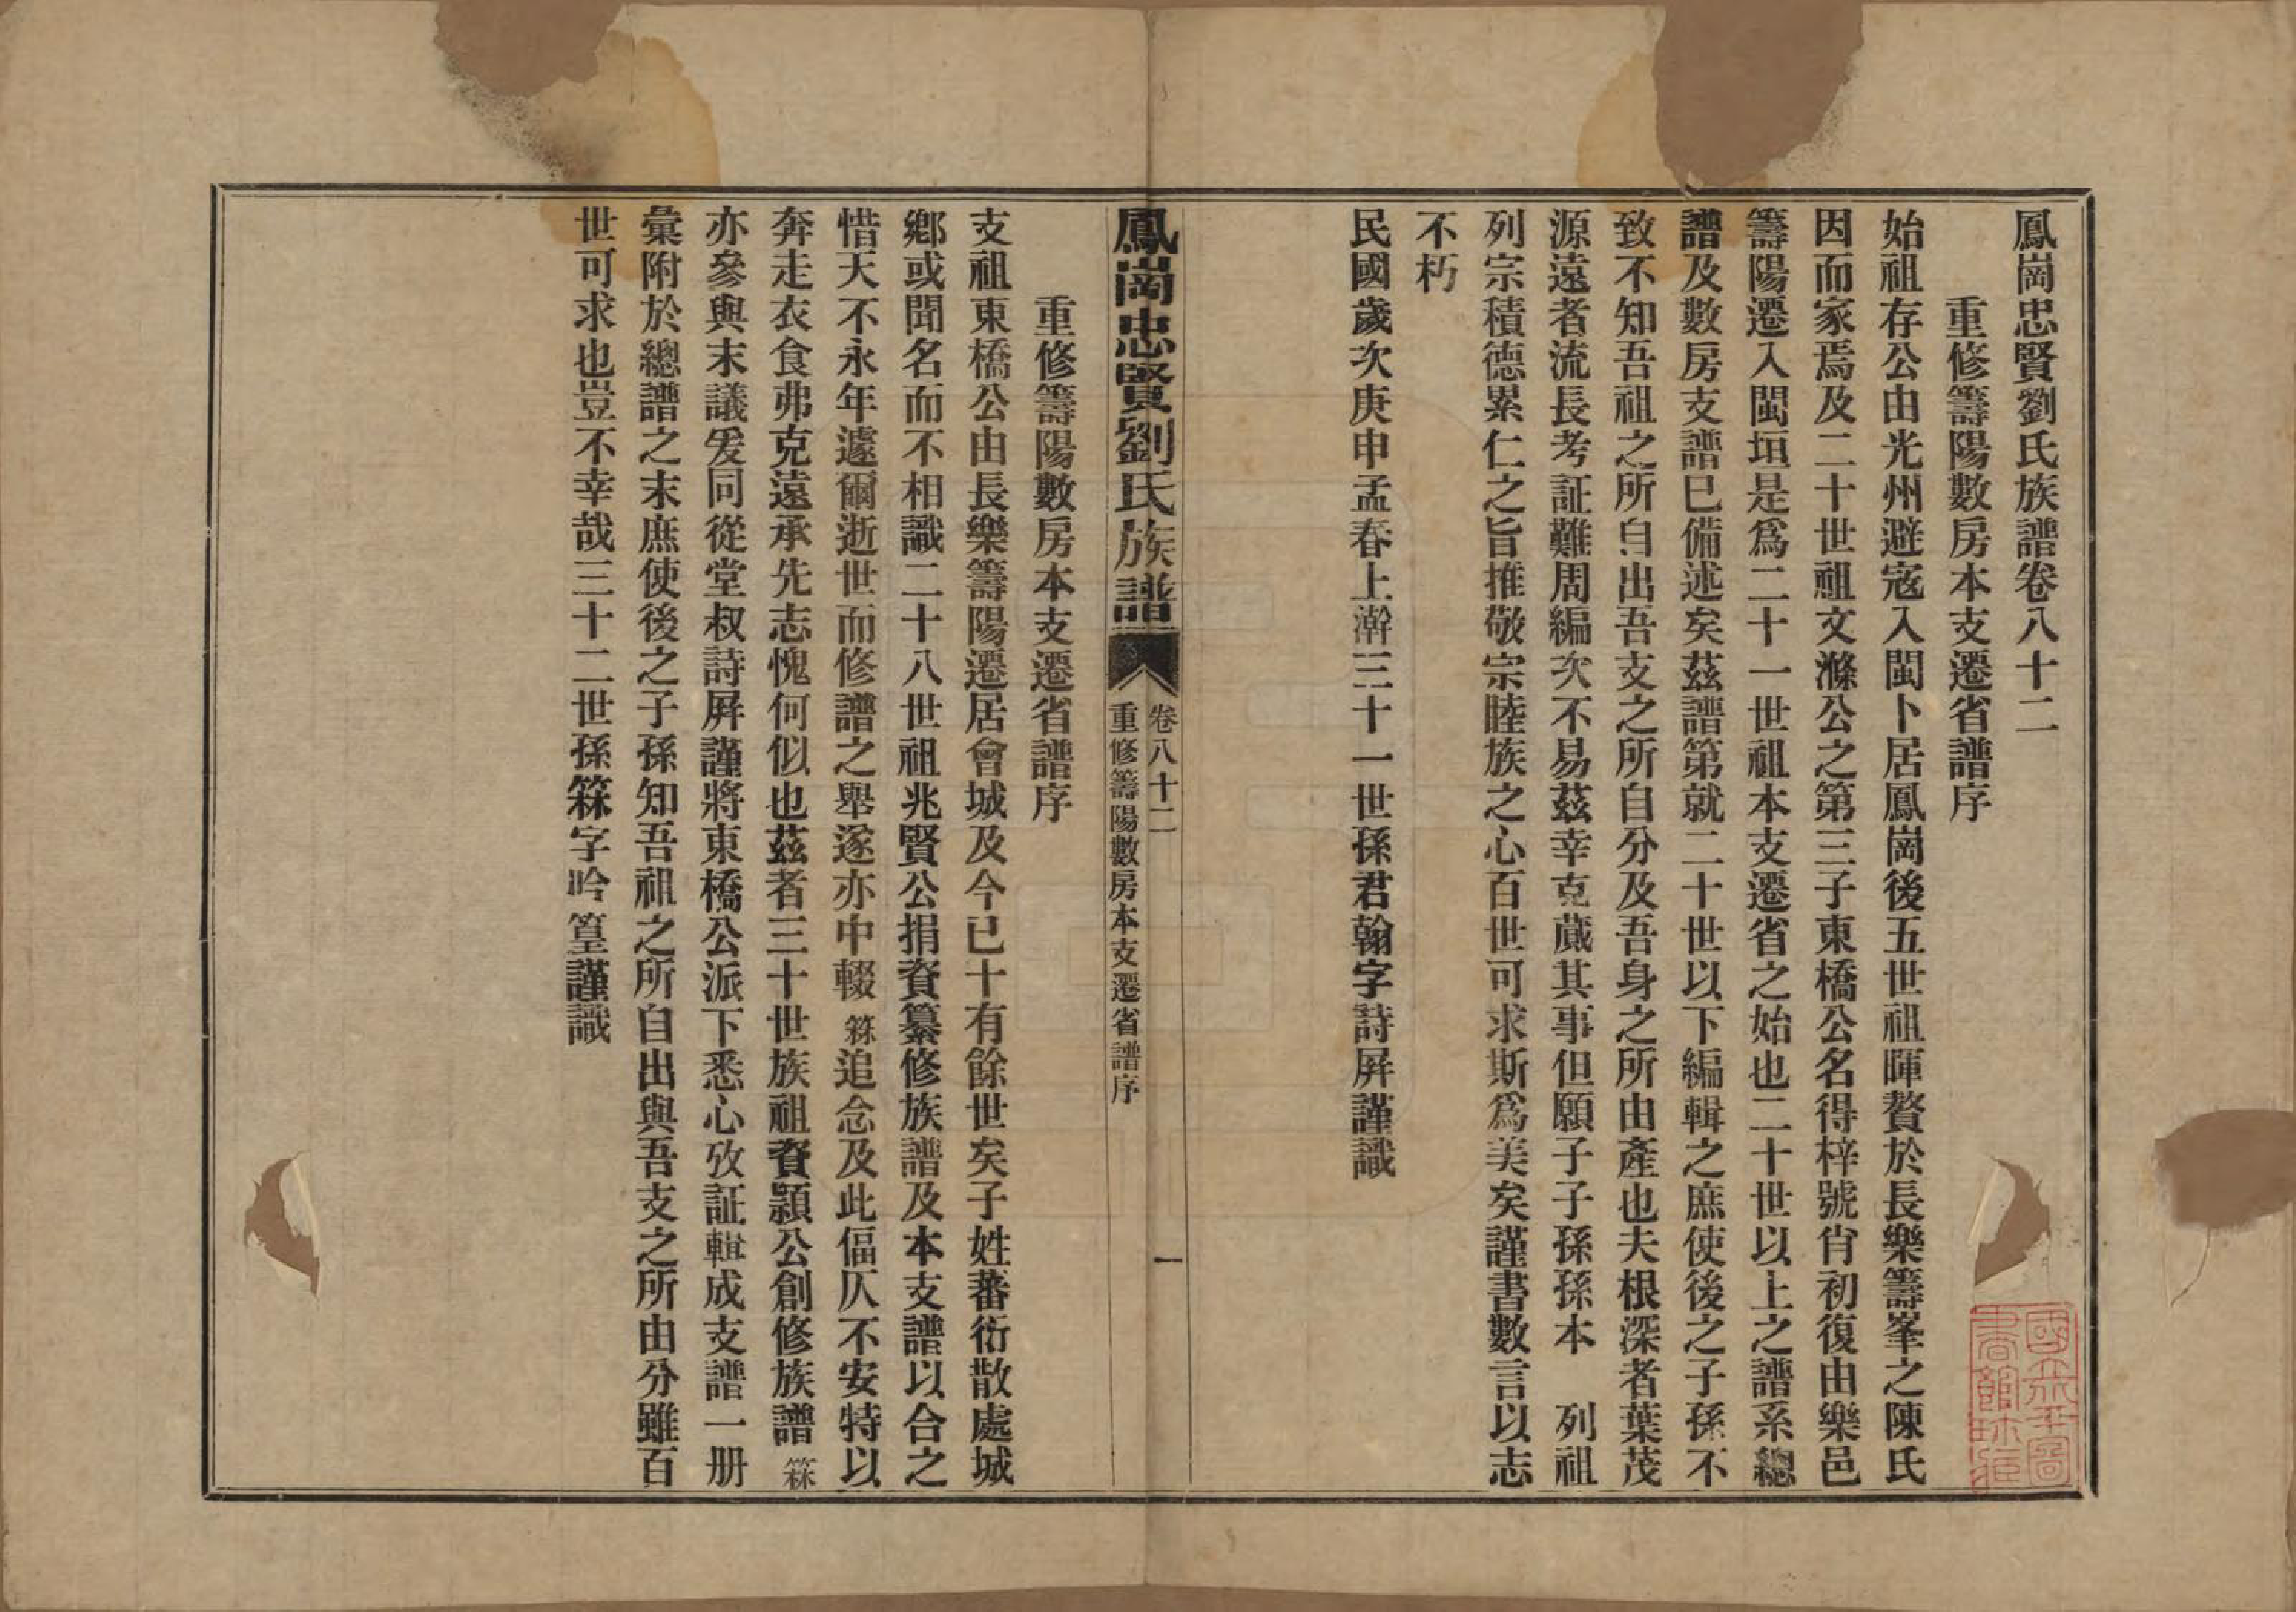 鳳崗忠賢劉氏族譜卷八十二
重修籌陽數房本支遷省譜序
始祖存公由光州避寇入閩卜居鳳崗後五世祖暉贅於長樂籌峯之陳氏
因而家焉及二十世祖文滌公之第三子東橋公名得梓號肖初復由樂邑
籌陽遷入閩垣是爲二十一世祖本支遷省之始也二十世以上之譜系總
譜及數房支譜已備述矣茲譜第就二十世以下編輯之庶使後之子孫不
致不知吾祖之所自出吾支之所自分及吾身之所由產也夫根深者葉茂
源遠者流長考証難周編次不易茲幸克蕆其事但願子子孫孫本 列祖
列宗積德累仁之旨推敬宗睦族之心百世可求斯爲美矣謹書數言以志
不朽
民國歲次庚申孟春上澣三十一世孫君翰字詩屏謹識
鳳崗忠賢劉氏族譜
卷八十二
重修籌陽數房本支遷省譜序
一
重修籌陽數房本支遷省譜序
支祖東橋公由長樂籌陽遷居會城及今已十有餘世矣子姓蕃衍散處城
鄉或聞名而不相識二十八世祖兆賢公捐資纂修族譜及本支譜以合之
惜天不永年遽爾逝世而修譜之舉遂亦中輟箖追念及此偪仄不安特以
奔走衣食弗克遠承先志愧何似也茲者三十世族祖資穎公創修族譜箖
亦參與末議爰同從堂叔詩屏謹將東橋公派下悉心攷証輯成支譜一册
彙附於總譜之末庶使後之子孫知吾祖之所自出與吾支之所由分雖百
世可求也豈不幸哉三十二世孫箖字吟篁謹識
國立北平圖書館珍藏